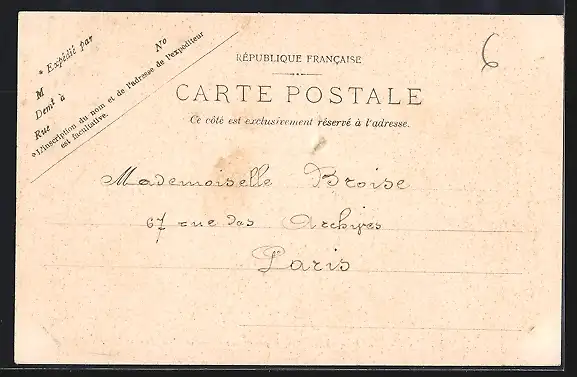 * Expédié par
M
No
Demt à
Rue
* L'inscription du nom et de l'adresse de l'expéditeur
est facultative.
6
RÉPUBLIQUE FRANÇAISE
CARTE POSTALE
Ce côté est exclusivement réservé à l'adresse.
Mademoiselle Broise
67 rue des Archives
Paris